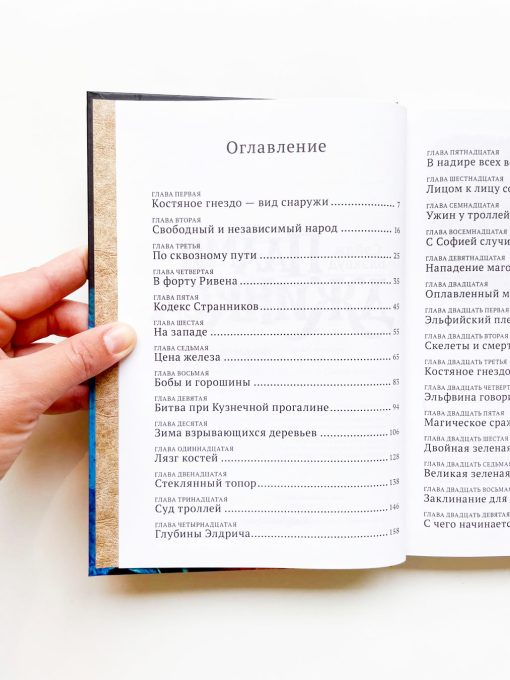 Оглавление
ГЛАВА ПЕРВАЯ
Костяное гнездо — вид снаружи 7
ГЛАВА ВТОРАЯ
Свободный и независимый народ 16
ГЛАВА ТРЕТЬЯ
По сквозному пути 25
ГЛАВА ЧЕТВЕРТАЯ
В форту Ривена 35
ГЛАВА ПЯТАЯ
Кодекс Странников 45
ГЛАВА ШЕСТАЯ
На западе 55
ГЛАВА СЕДЬМАЯ
Цена железа 65
ГЛАВА ВОСЬМАЯ
Бобы и горошины 83
ГЛАВА ДЕВЯТАЯ
Битва при Кузнечной прогалине 94
ГЛАВА ДЕСЯТАЯ
Зима взрывающихся деревьев 106
ГЛАВА ОДИННАДЦАТАЯ
Лязг костей 128
ГЛАВА ДВЕНАДЦАТАЯ
Стеклянный топор 138
ГЛАВА ТРИНАДЦАТАЯ
Суд троллей 146
ГЛАВА ЧЕТЫРНАДЦАТАЯ
Глубины Элдрича 158
ГЛАВА ПЯТНАДЦАТАЯ
В надире всех
ГЛАВА ШЕСТНАДЦАТАЯ
Лицом к лицу
ГЛАВА СЕМНАДЦАТАЯ
Ужин у троллей
ГЛАВА ВОСЕМНАДЦАТАЯ
С Софией случи
ГЛАВА ДЕВЯТНАДЦАТАЯ
Нападение маго
ГЛАВА ДВАДЦАТАЯ
Оплавленный м
ГЛАВА ДВАДЦАТЬ ПЕРВАЯ
Эльфийский пле
ГЛАВА ДВАДЦАТЬ ВТОРАЯ
Скелеты и смерт
ГЛАВА ДВАДЦАТЬ ТРЕТЬЯ
Костяное гнездо
ГЛАВА ДВАДЦАТЬ ЧЕТВЕРТ
Эльфвина говори
ГЛАВА ДВАДЦАТЬ ПЯТАЯ
Магическое сраж
ГЛАВА ДВАДЦАТЬ ШЕСТАЯ
Двойная зеленая
ГЛАВА ДВАДЦАТЬ СЕДЬМАЯ
Великая зеленая
ГЛАВА ДВАДЦАТЬ ВОСЬМАЯ
Заклинание для
ГЛАВА ДВАДЦАТЬ ДЕВЯТАЯ
С чего начинается